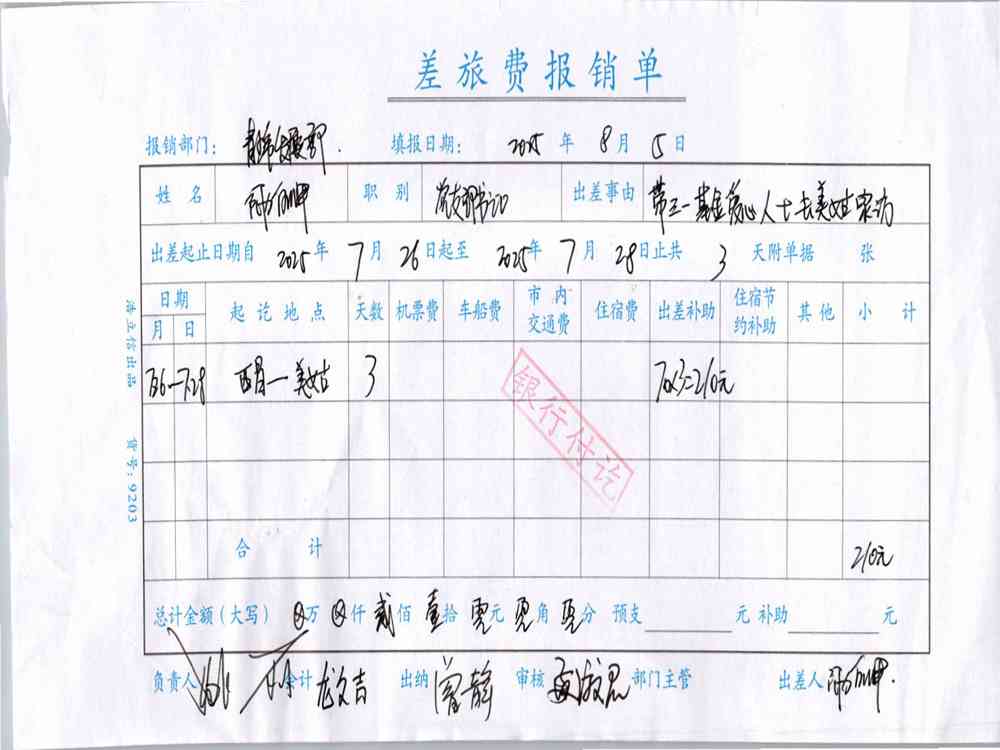 差旅费报销单
报销部门： 填报日期： 2025 年 8 月 5 日
姓名 职别 出差事由 第三一基金爱心人士去美姑家访
出差起止日期自 2025 年 7 月 26 日起至 2025 年 7 月 28 日止共 3 天附单据 张
日期 起讫地点 天数 机票费 车船费 市内交通费 住宿费 出差补助 住宿节约补助 其他 小计
月 日
7.26—7.28 西昌—美姑 3 70×3=210元
银行付讫
合计 210元
总计金额（大写） ⊗万 ⊗仟 贰佰 壹拾 零元 零角 零分 预支 元 补助 元
负责人 会计 龙文吉 出纳 曾静 审核 部门主管 出差人
浩立信出品 货号：9203